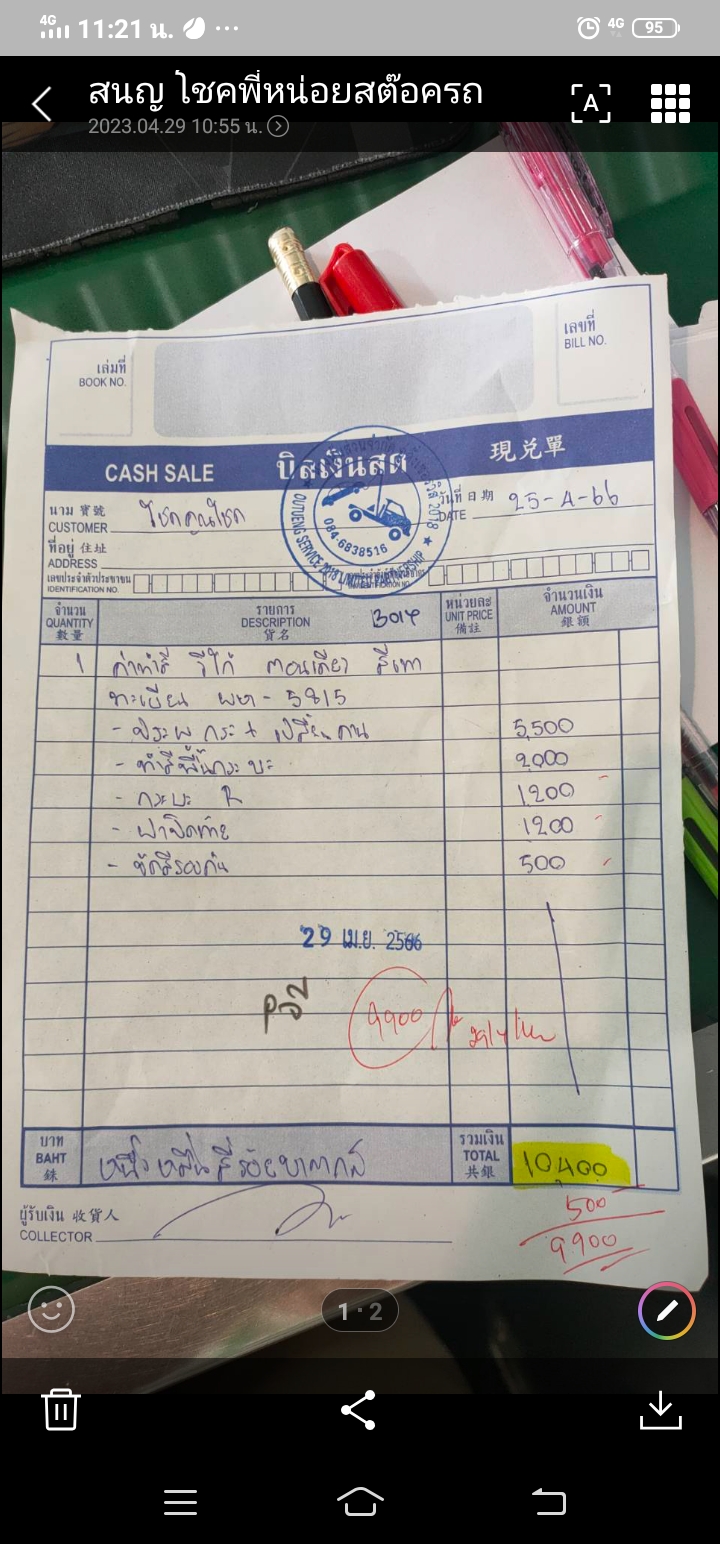 4G 11:21 น. ... 4G 95
สนญ โชคพี่หน่อยสต๊อครถ
A
2023.04.29 10:55 น.
เล่มที่
BOOK NO.
เลขที่
BILL NO.
CASH SALE บิลเงินสด 現兑單
นาม 寳號
CUSTOMER โชคคูณโชค
วันที่ 日期
DATE 25-4-66
ที่อยู่ 住址
ADDRESS
เลขประจำตัวประชาชน
IDENTIFICATION NO.
2018
084-6838516
OUTUENG SERVICE 2018 LIMITED PARTNERSHIP
จำนวน
QUANTITY
數量
รายการ
DESCRIPTION
貨名
หน่วยละ
UNIT PRICE
備註
จำนวนเงิน
AMOUNT
銀額
1 ค่าทำสี รีโก้ ตอนเดียว สีเทา
ทะเบียน 5815
5,500
- ทำสีพื้นกระบะ 2000
- กระบะ R 1200
- ฝาปิดท้าย 1200
- ขัดสีรอบคัน 500
29 เม.ย. 2566
9900
29/4
บาท
BAHT
銖
หนึ่งหมื่นสี่ร้อยบาท
รวมเงิน
TOTAL
共銀
10,400
500
9900
ผู้รับเงิน 收貨人
COLLECTOR
1 2